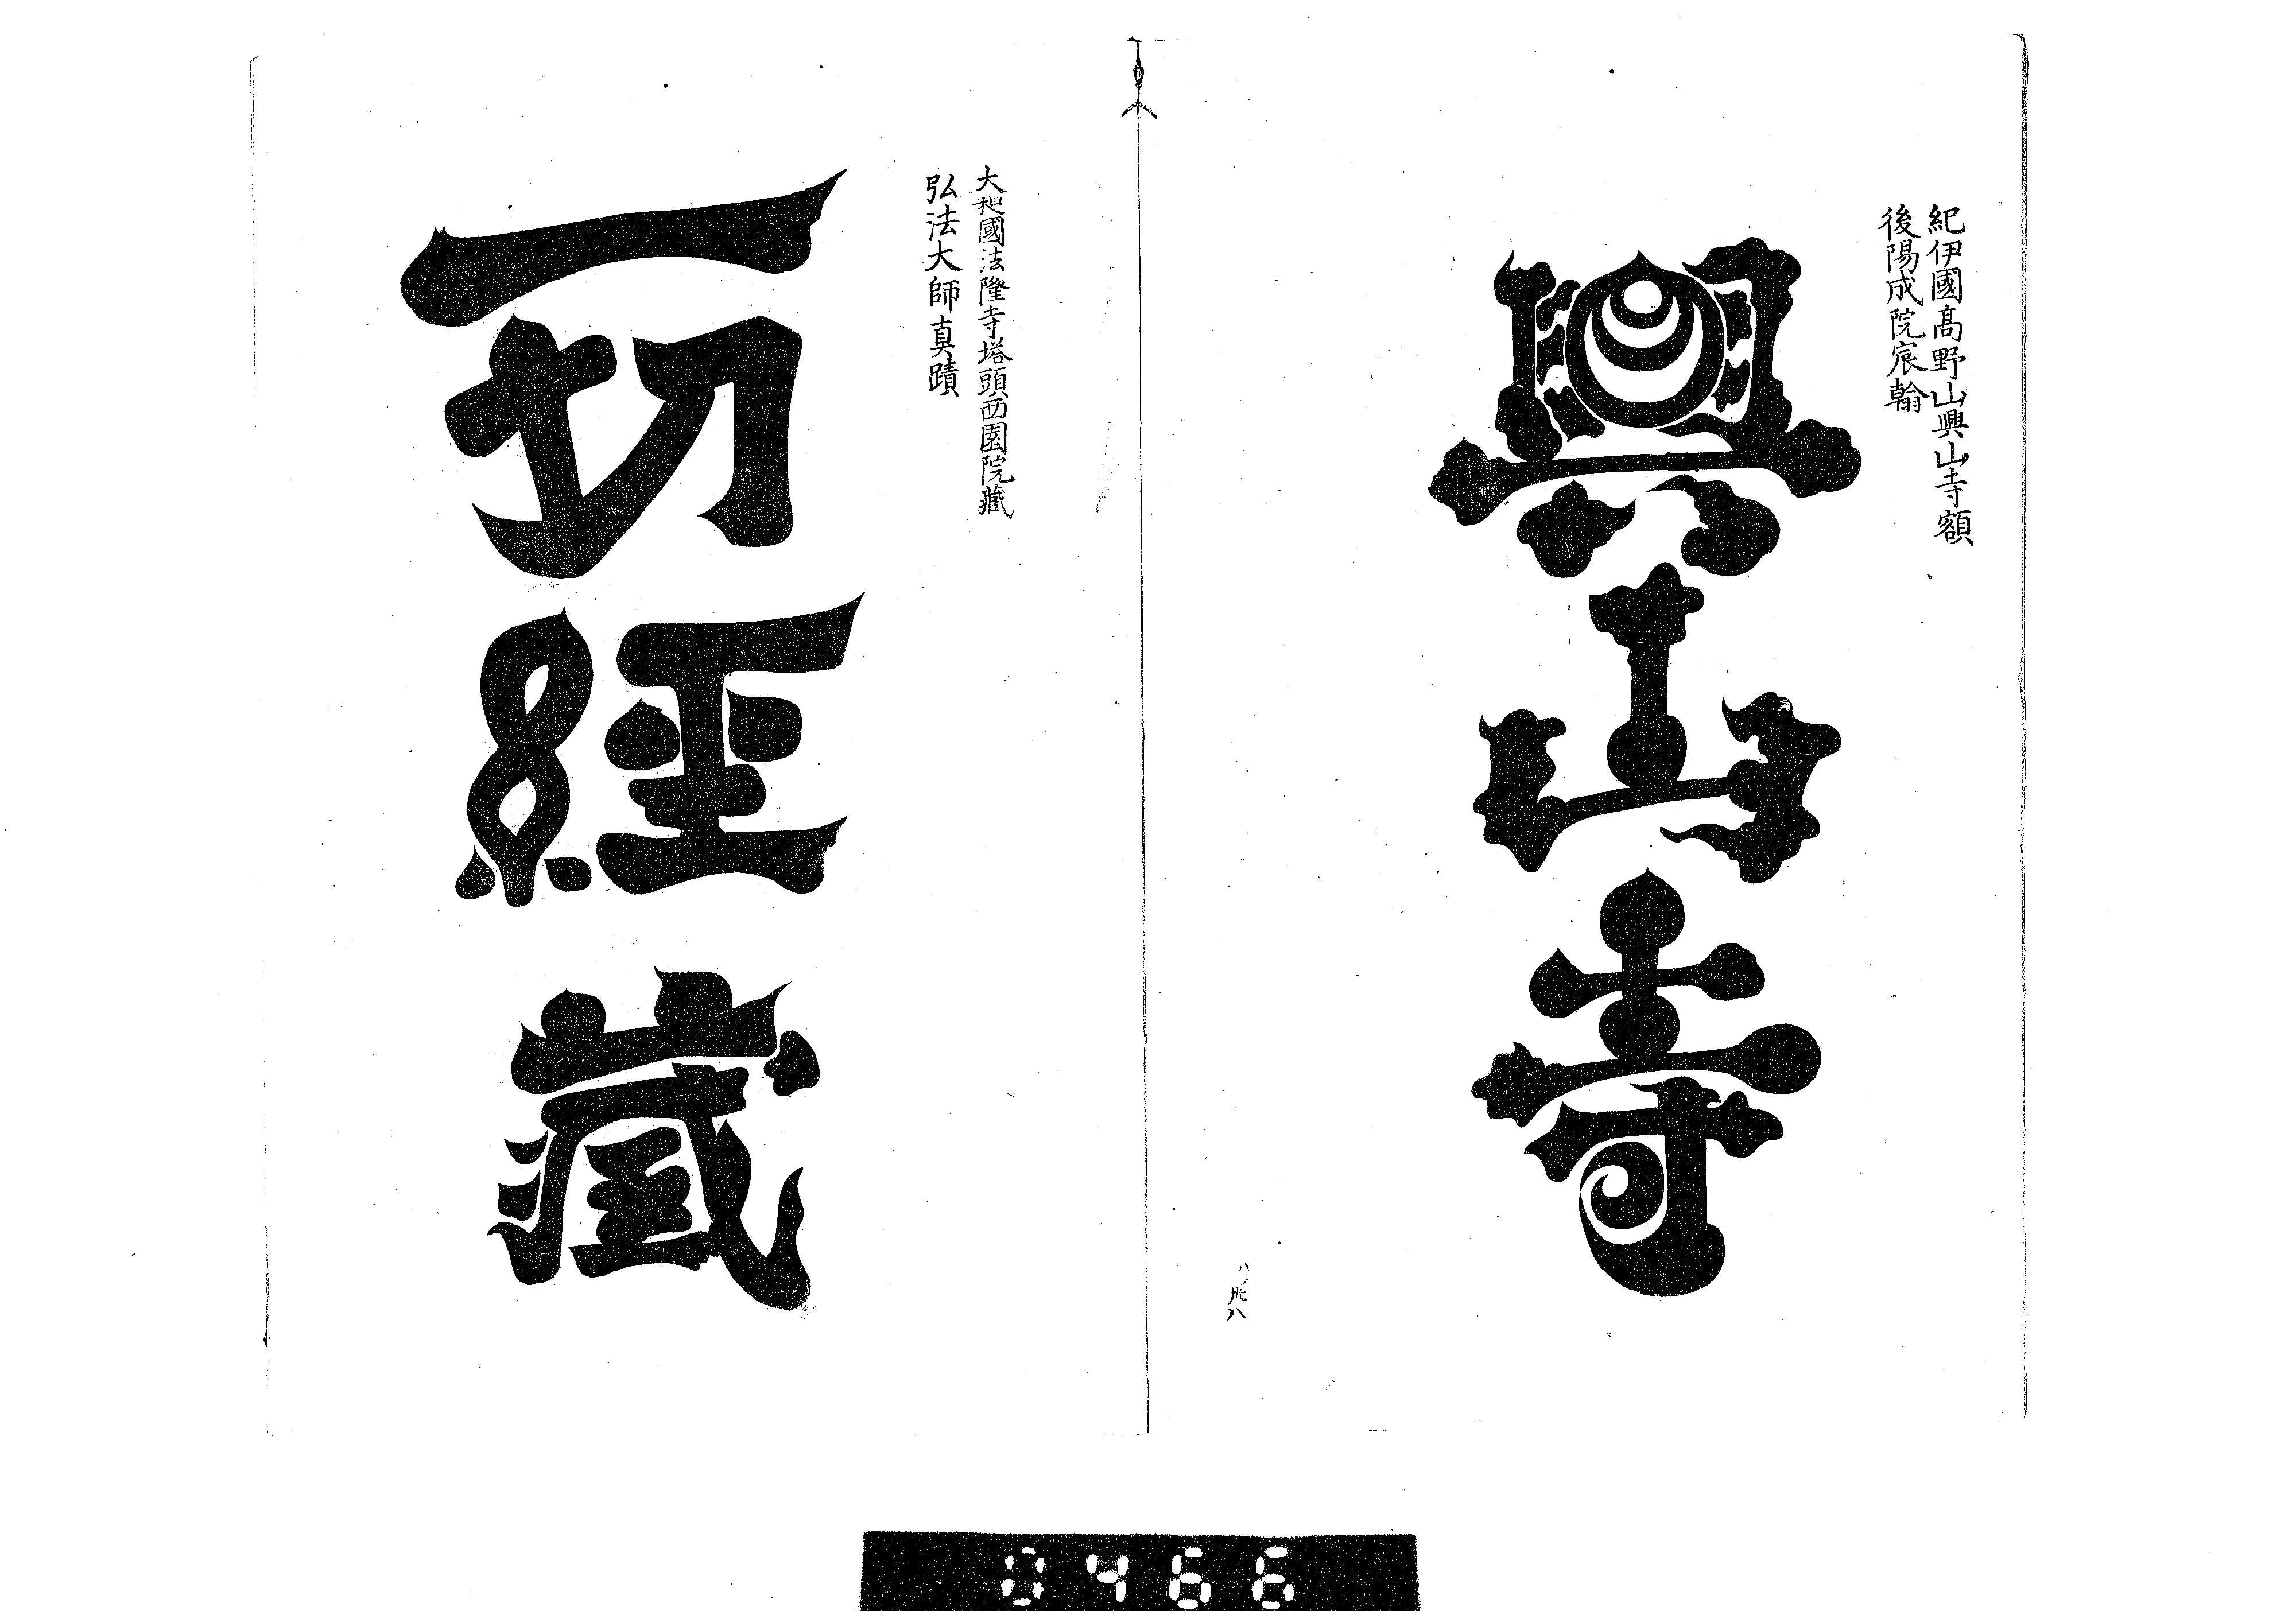 紀伊國髙野山興山寺額
後陽成院宸翰
興山寺
八ノ卅八
大和國法隆寺塔頭西園院藏
弘法大師真蹟
一切經藏
0466